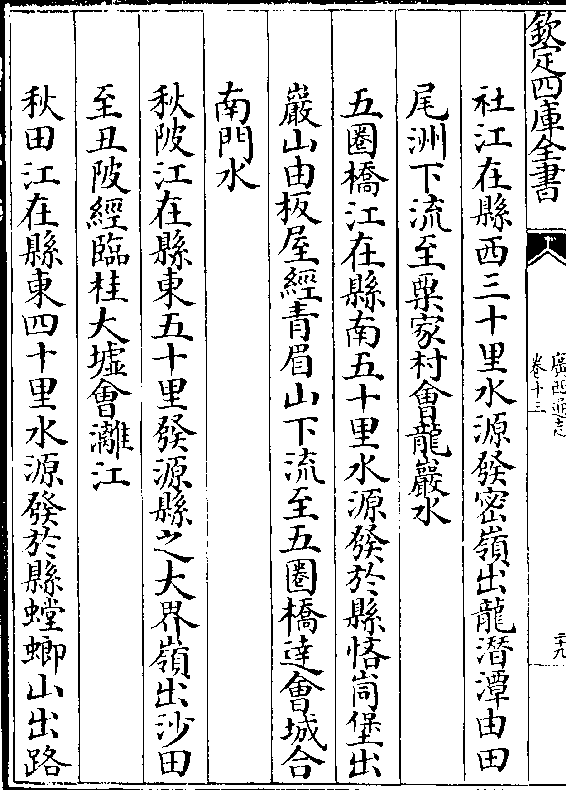 欽定四庫全書
廣西通志
卷十三
二十九
社江在縣西三十里水源發密嶺出龍潛潭由田
尾洲下流至粟家村會龍巖水
五圈橋江在縣南五十里水源發於縣悋峝堡出
巖山由板屋經青眉山下流至五圈橋達會城合
南門水
秋陂江在縣東五十里發源縣之大界嶺出沙田
至丑陂經臨桂大墟會灕江
秋田江在縣東四十里水源發於縣螳螂山出路